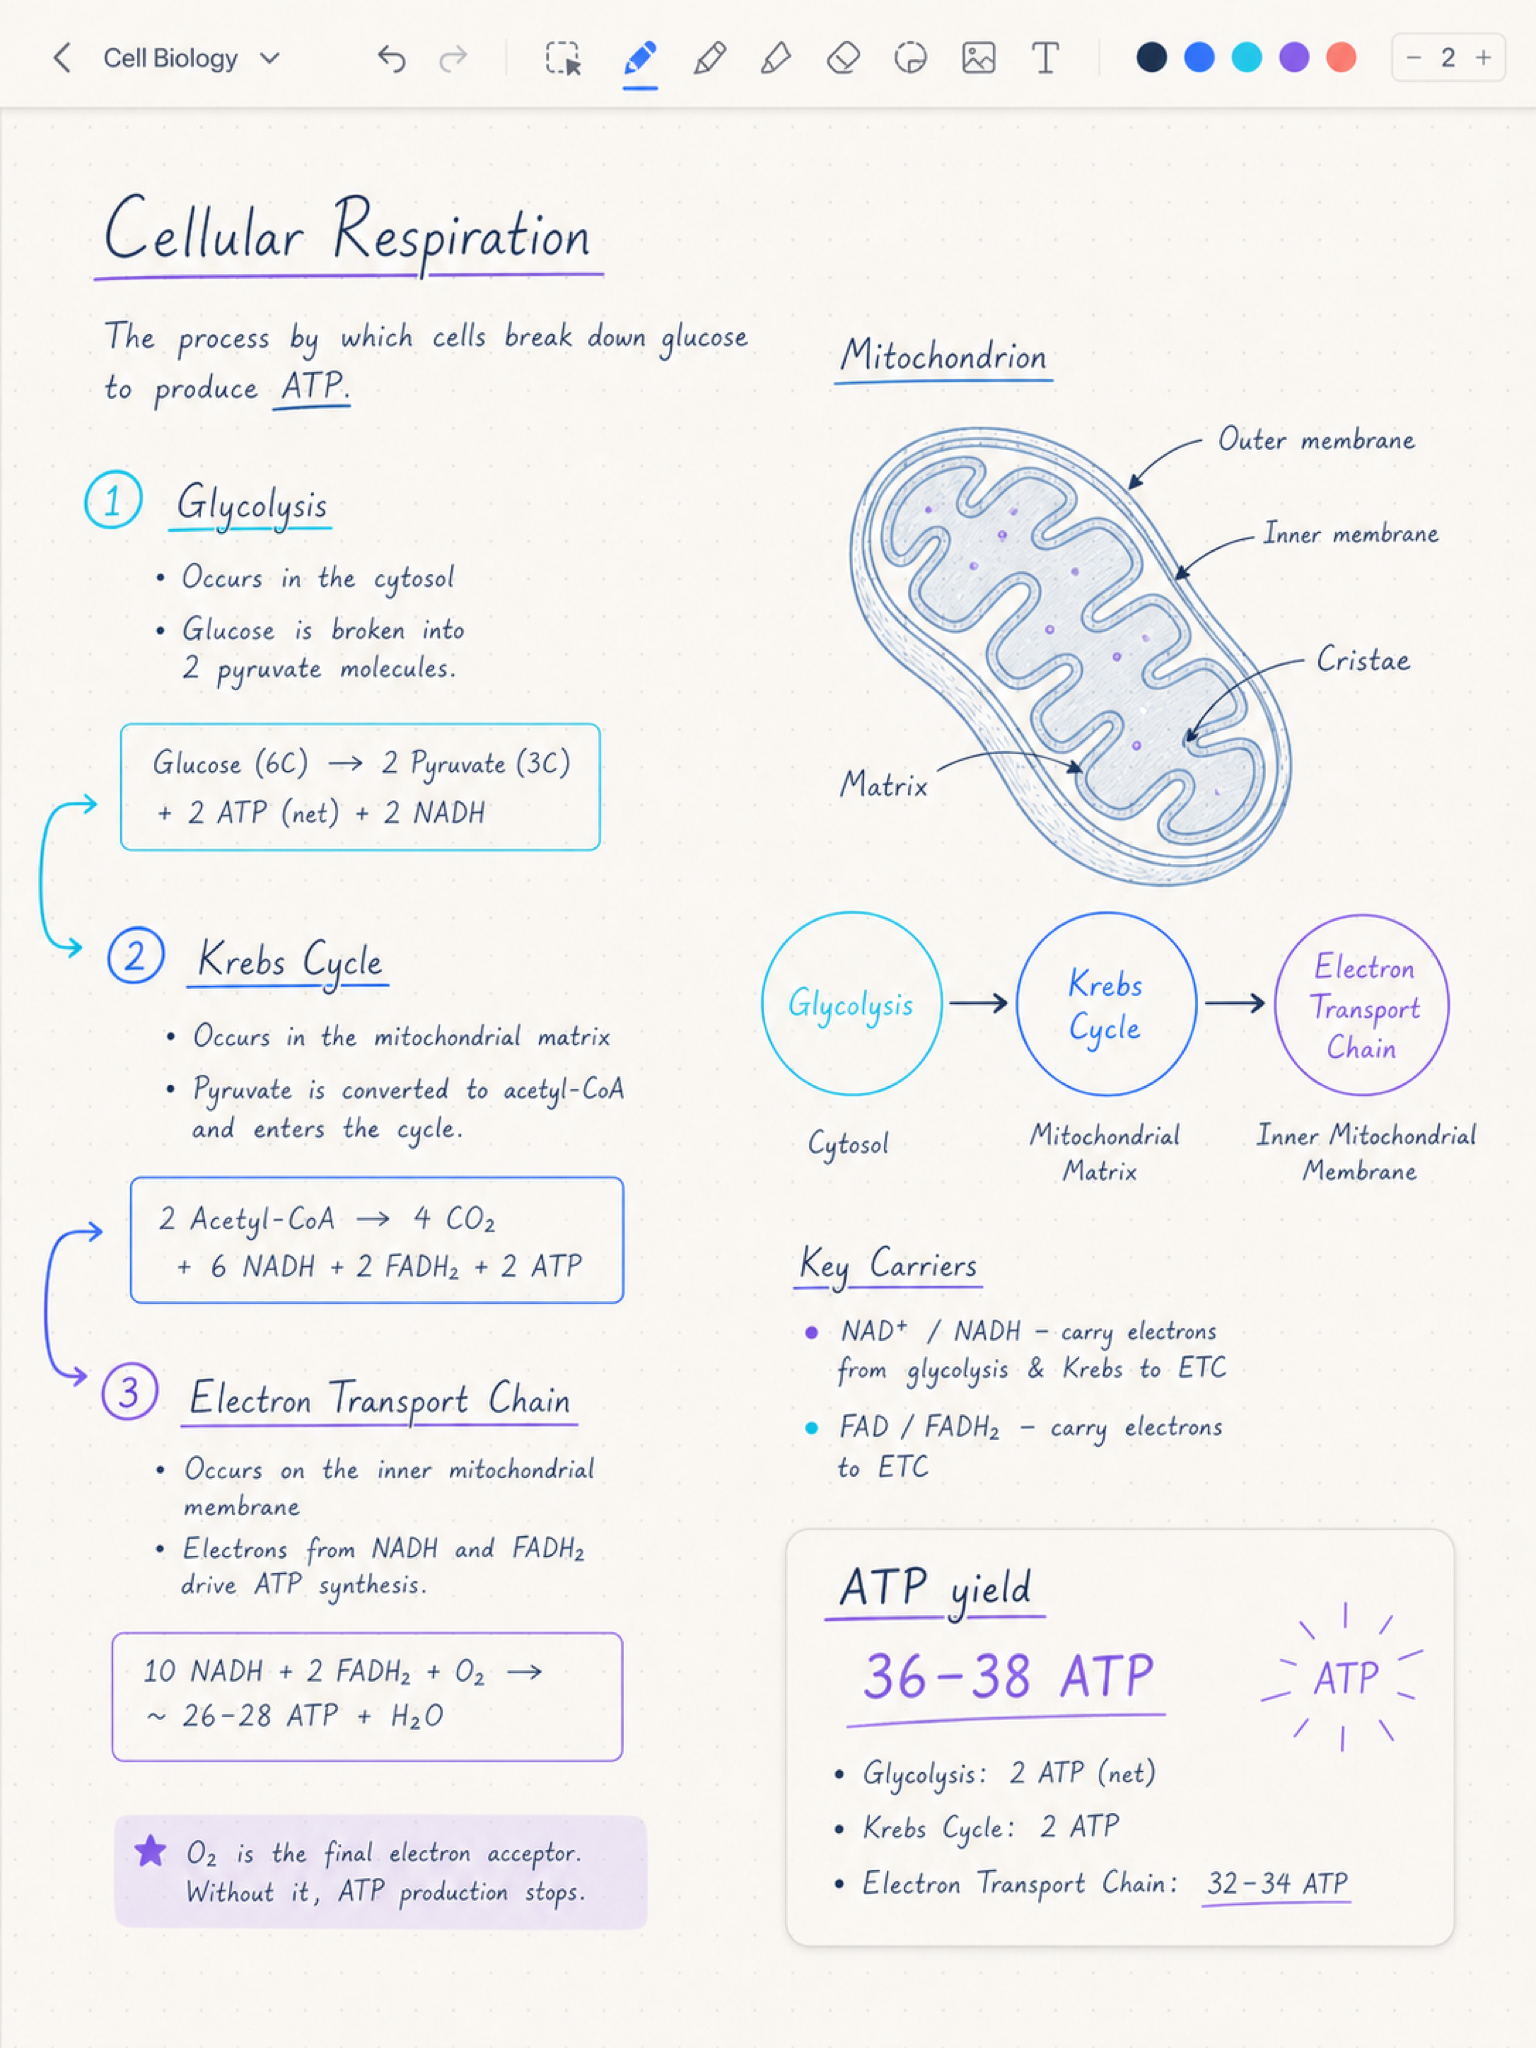 Cell Biology
2
Cellular Respiration
The process by which cells break down glucose
to produce ATP.
1 Glycolysis
• Occurs in the cytosol
• Glucose is broken into
2 pyruvate molecules.
Glucose (6C) → 2 Pyruvate (3C)
+ 2 ATP (net) + 2 NADH
2 Krebs Cycle
• Occurs in the mitochondrial matrix
• Pyruvate is converted to acetyl-CoA
and enters the cycle.
2 Acetyl-CoA → 4 CO₂
+ 6 NADH + 2 FADH₂ + 2 ATP
3 Electron Transport Chain
• Occurs on the inner mitochondrial
membrane
• Electrons from NADH and FADH₂
drive ATP synthesis.
10 NADH + 2 FADH₂ + O₂ →
~ 26-28 ATP + H₂O
★ O₂ is the final electron acceptor.
Without it, ATP production stops.
Mitochondrion
Outer membrane
Inner membrane
Cristae
Matrix
Glycolysis
Krebs
Cycle
Electron
Transport
Chain
Cytosol
Mitochondrial
Matrix
Inner Mitochondrial
Membrane
Key Carriers
• NAD⁺ / NADH – carry electrons
from glycolysis & Krebs to ETC
• FAD / FADH₂ – carry electrons
to ETC
ATP yield
36-38 ATP
ATP
• Glycolysis: 2 ATP (net)
• Krebs Cycle: 2 ATP
• Electron Transport Chain: 32-34 ATP